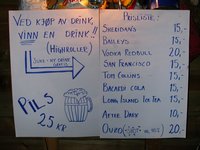 VED KJØP AV DRINK,
VINN EN DRINK!!
(HIGHROLLER)
PILS
25 KR
PRISLISTE:
SHERIDAN'S 15,-
BAILEYS 15,-
VODKA REDBULL 20,-
SAN FRANCISCO 15,-
TOM COLLINS 15,-
BACARDI COLA 15,-
LONG ISLAND ICE TEA 15,-
AFTER DARK 10,-
20,-